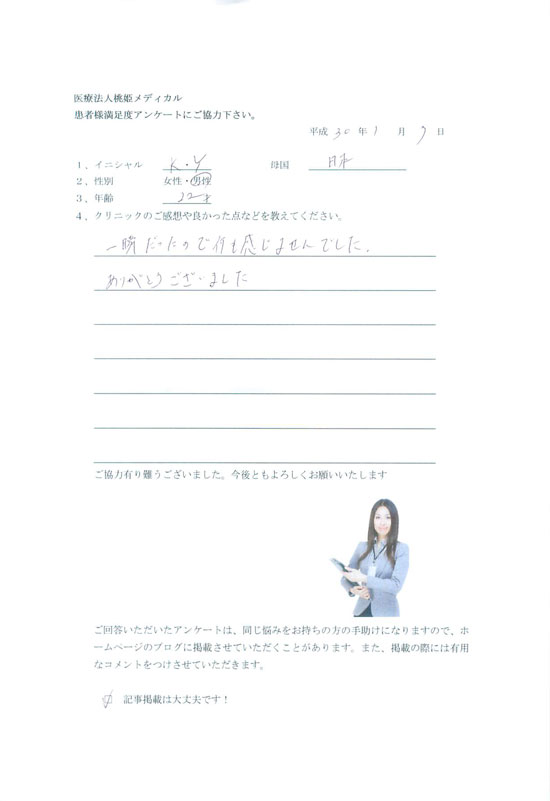 医療法人桃姫メディカル
患者様満足度アンケートにご協力下さい。
平成 30 年 1 月 9 日
1、イニシャル K・Y 母国 日本
2、性別 女性・男性
3、年齢 22才
4、クリニックのご感想や良かった点などを教えてください。
一瞬だったので何も感じませんでした.
ありがとうございました
ご協力有り難うございました。今後ともよろしくお願いいたします
ご回答いただいたアンケートは、同じ悩みをお持ちの方の手助けになりますので、ホ
ームページのブログに掲載させていただくことがあります。また、掲載の際には有用
なコメントをつけさせていただきます。
記事掲載は大丈夫です！